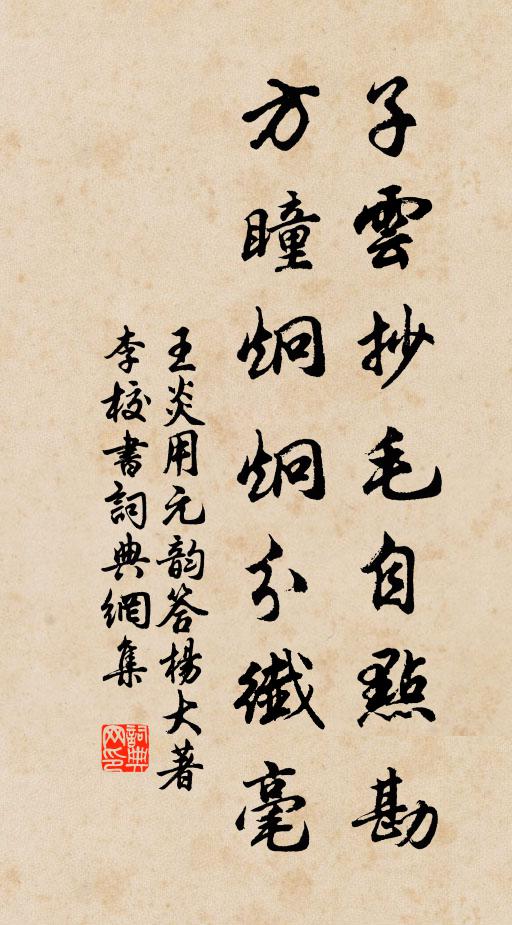 子雲抄毛自點勘
方瞳炯炯分纖毫
王炎用元韵答楊大著
李校書詞典網集
詞典网印